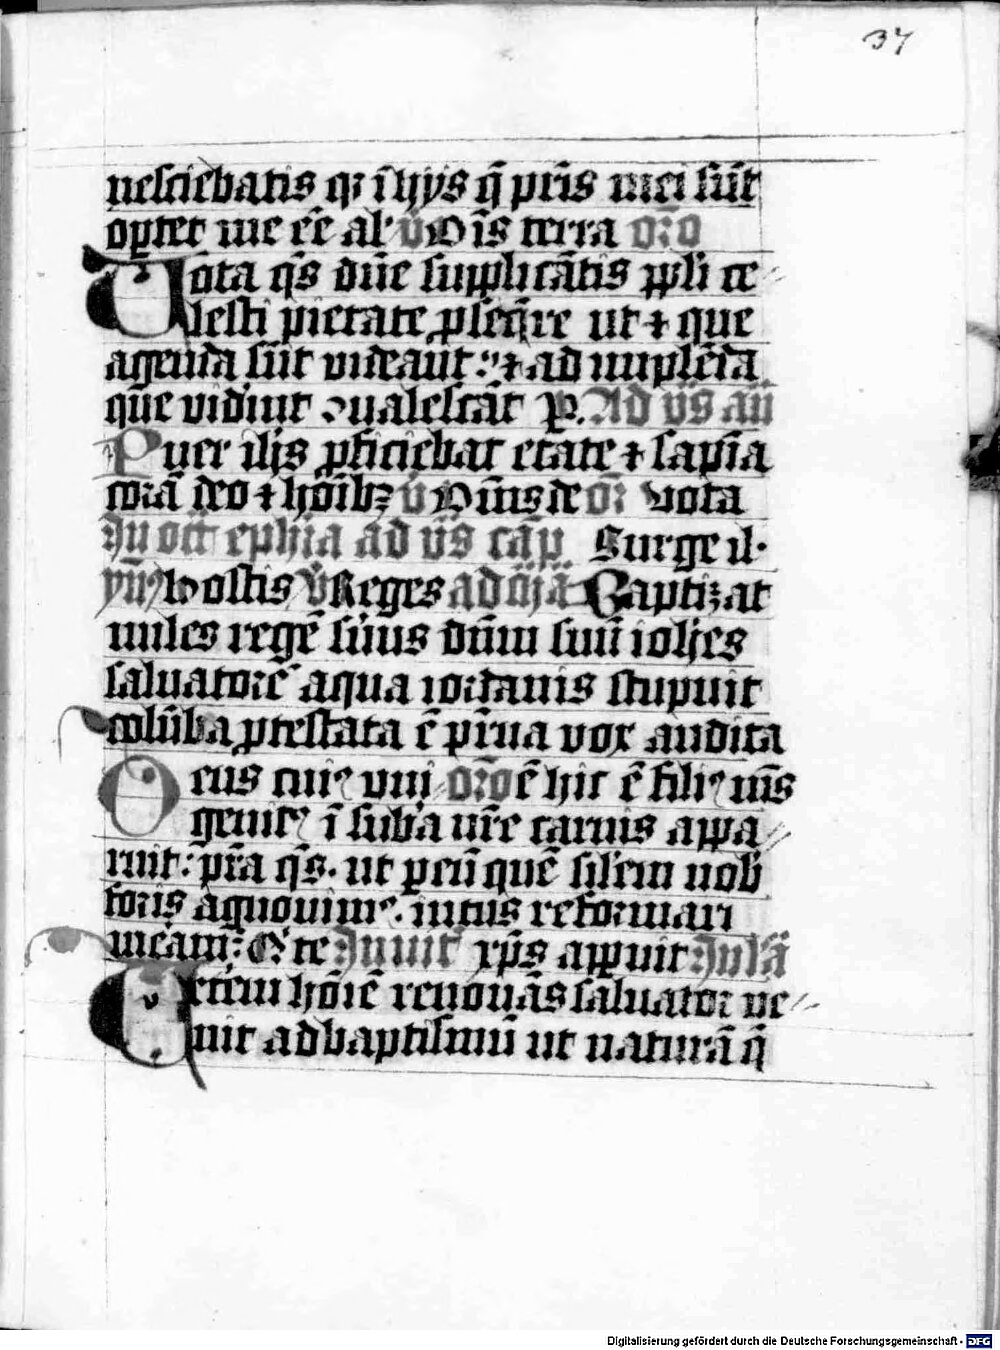 37
nesciebatis qꝛ ī hys q̄ pr̄is mei sūt
oꝑtet me eē al' v̄ Oīs terra or̄o
Vota qs̄ dn̄e supplicātis ppl'i ce
lesti pietate ꝓseq̄re ut ⁊ que
agenda sūt videāt ⁊ ad īmplēda
que viderīt ꝯualescāt P. Ad vs̄ an̄
Puer ih̄s ꝓficiebat etate ⁊ sapīa
corā deo ⁊ hoībꝫ v̄ Oīns de or̄ vota
In oct̄ eph̄ia ad vs̄ cāp̄ Surge il.
ym̄ Hostis v̄ Reges ad m̄ā Baptizat
miles regē suus dn̄m suū ioh̄es
saluatorē aqua iordanis stupuit
colūba ꝓtestata ē pr̄na vox audita
Deus cuiꝰ uni or̄o ē hic ē filiꝰ mꝰ
genitꝰ ī sub̄a nr̄e carnis appa
ruit: pr̄a qs̄. ut ꝑ eū quē sil'em nob̄
foris agnouimꝰ. intus reformari
meamꝰ: Q te Inuit̄ xp̄s apꝑuit In lā
Veterem hoīem renouās saluator ve
nit ad baptismū ut naturā q̄
Digitalisierung gefördert durch die Deutsche Forschungsgemeinschaft - DFG